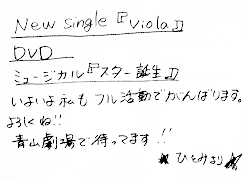 New single『Viola』
DVD
ミュージカル『スター誕生』
いよいよ私もフル活動でがんばります。
よろしくね!!
青山劇場で待ってます!!
★ひとみより★